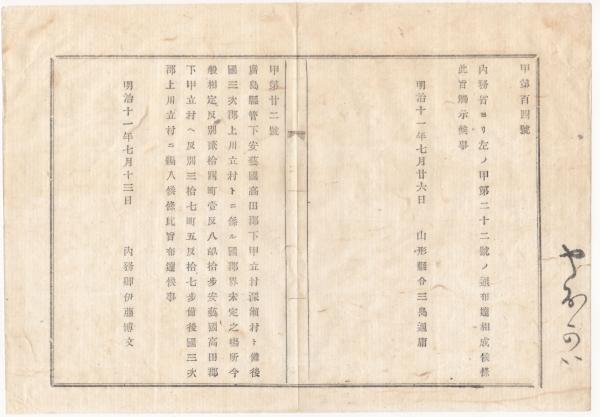 甲第百四號
内務省ヨリ左ノ甲第二十二號ノ通布達相成候條
此旨觸示候事
明治十一年七月廿六日　山形縣令三島通庸
甲第廿二號
廣島縣管下安藝國高田郡下甲立村深瀬村ト備後
國三次郡上川立村トニ係ル國郡界未定之場所今
般相定反別貳拾四町壹反八畝拾歩安藝國高田郡
下甲立村ヘ反別三拾七町五反拾七歩備後國三次
郡上川立村ニ編入候條此旨布達候事
明治十一年七月十三日　内務卿伊藤博文